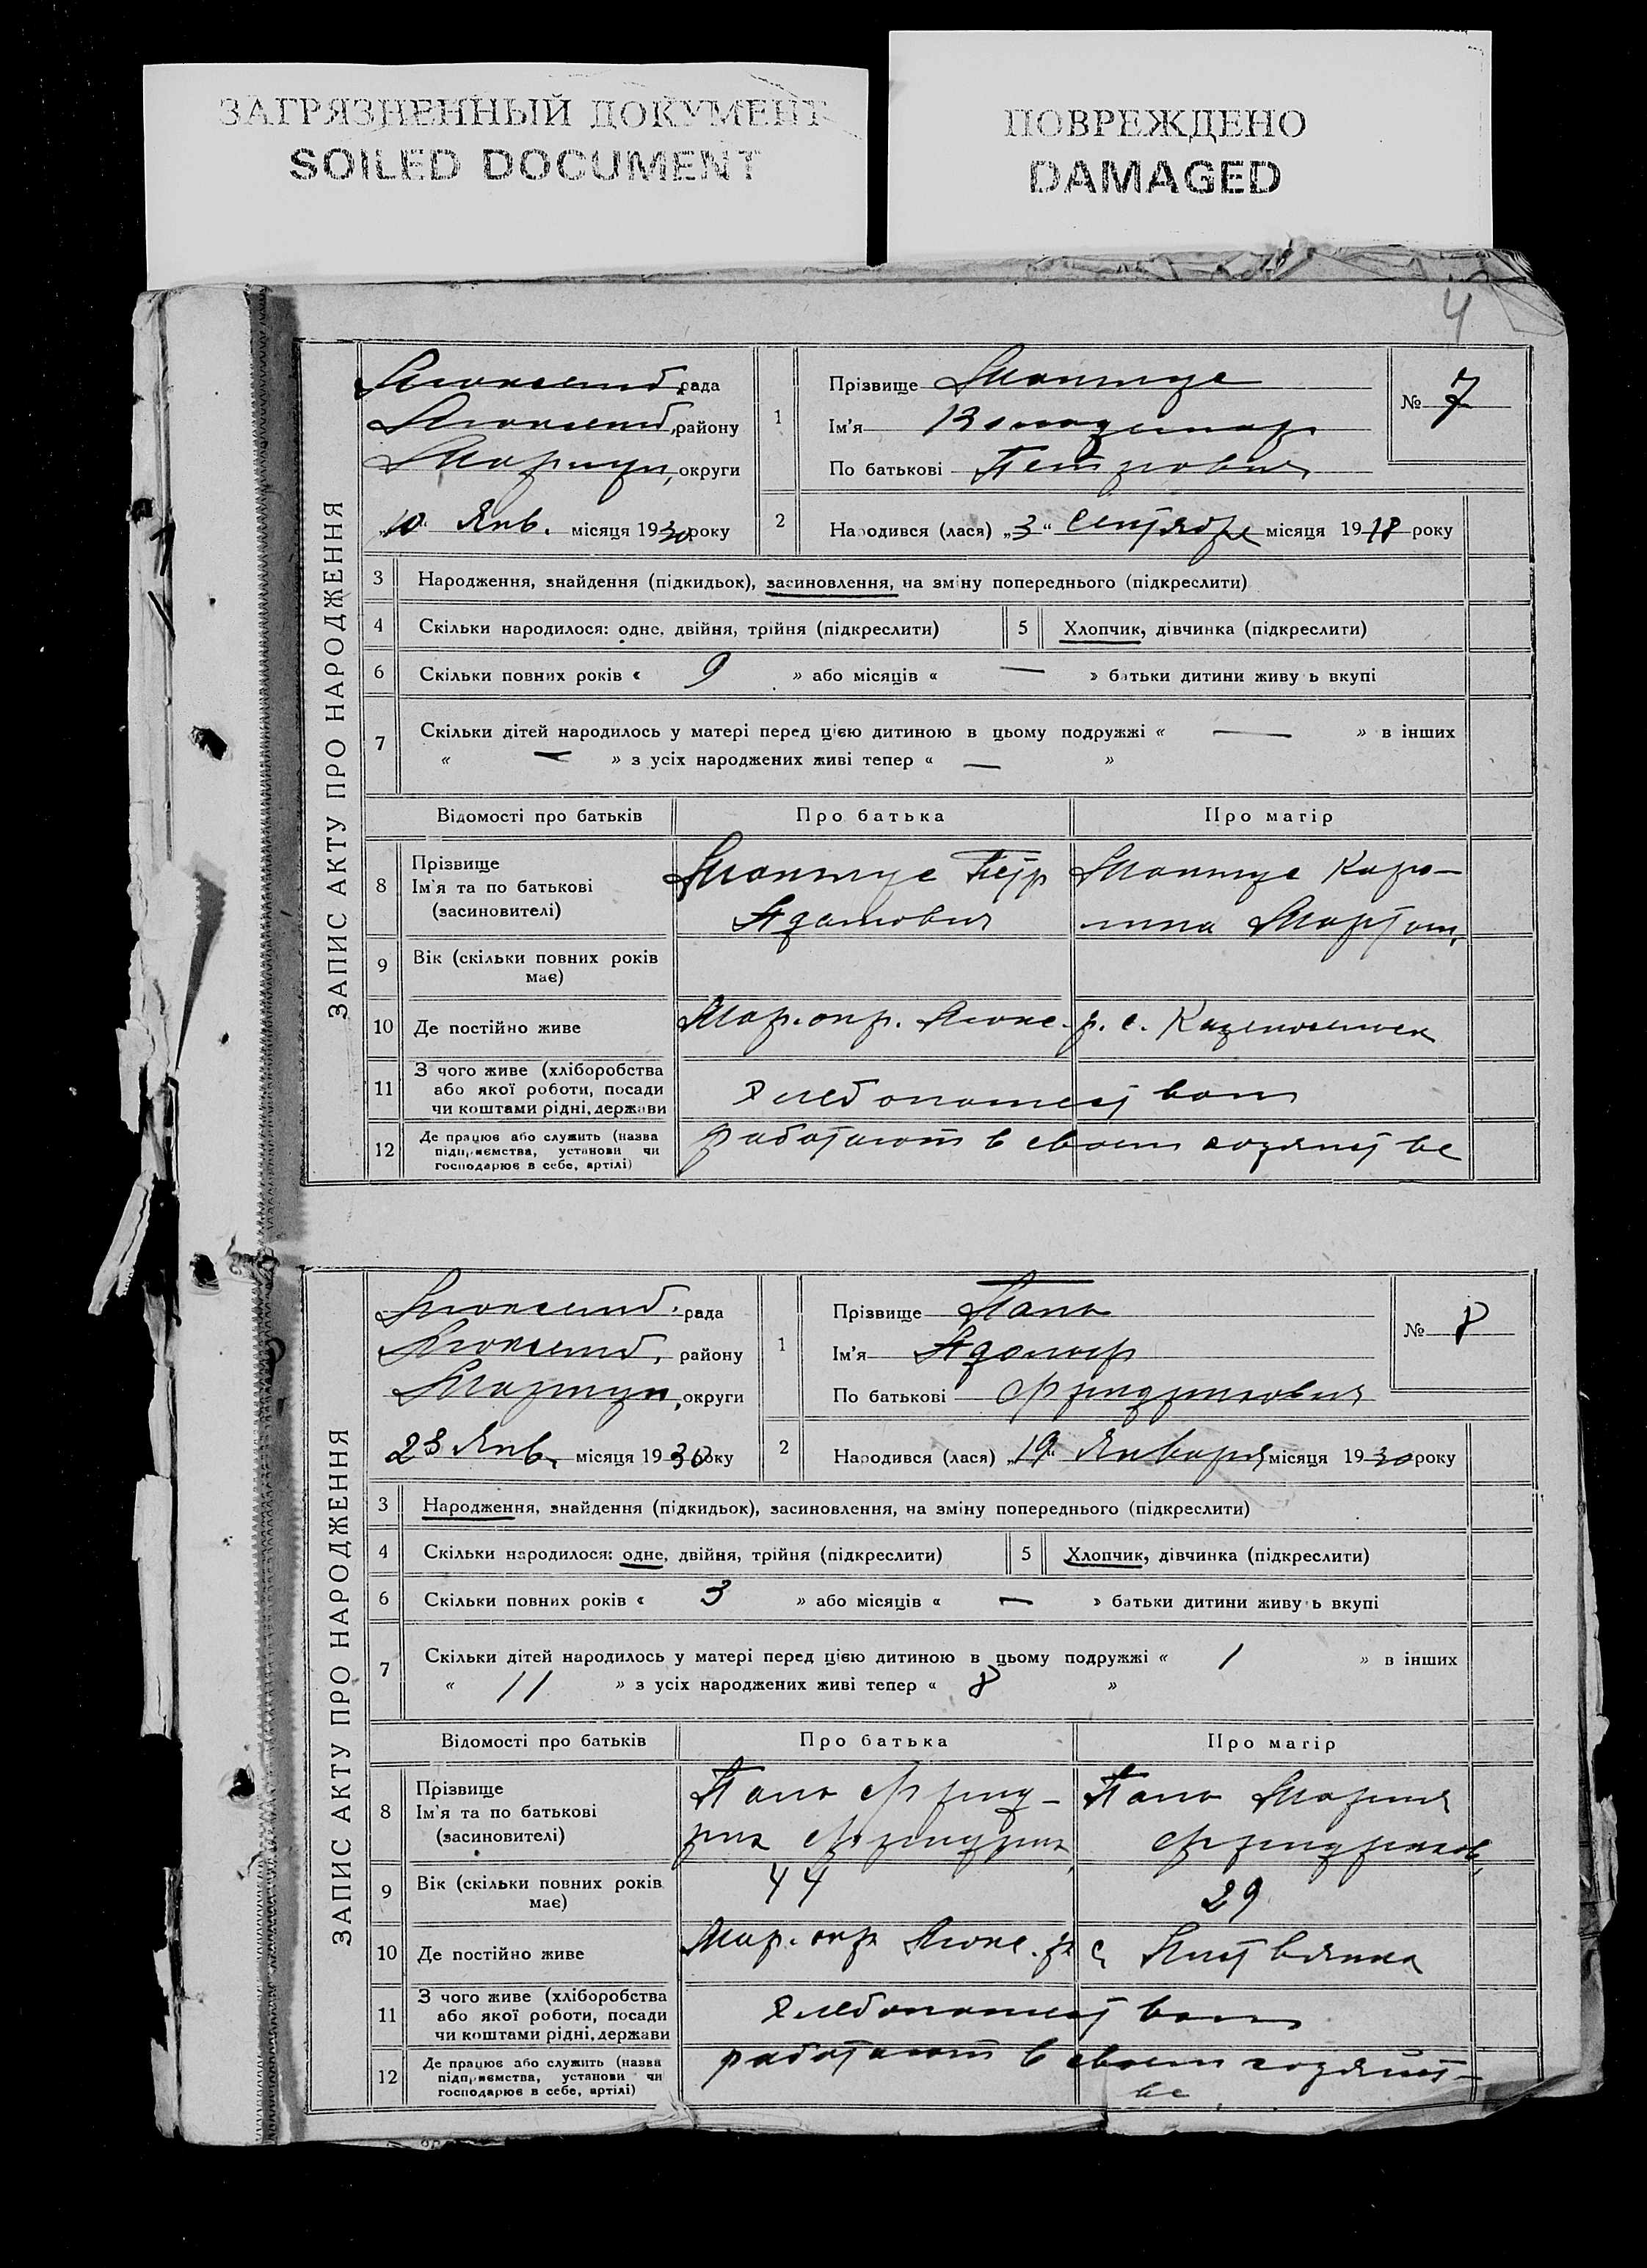 ЗАГРЯЗНЕННЫЙ ДОКУМЕНТ
SOILED DOCUMENT
ПОВРЕЖДЕНО
DAMAGED
4
ЗАПИС АКТУ ПРО НАРОДЖЕННЯ
Люксемб. рада
Люксемб. району
Мариуп. округи
„10“ Янв. місяця 1930 року
1
Прізвище
Ім'я Володимир
По батькові Петрович
№ 7
2 Народився (лася) „3“ Сентября місяця 1918 року
3 Народження, знайдення (підкидьок), засиновлення, на зміну попереднього (підкреслити)
4 Скільки народилося: одне, двійня, трійня (підкреслити) 5 Хлопчик, дівчинка (підкреслити)
6 Скільки повних років « 9 » або місяців « — » батьки дитини живуть вкупі
7 Скільки дітей народилось у матері перед цією дитиною в цьому подружжі « — » в інших
« — » з усіх народжених живі тепер « — »
Відомості про батьків Про батька Про матір
8 Прізвище
Ім'я та по батькові
(засиновителі)
Петр
Адамович
Каро-
лина Март
9 Вік (скільки повних років
має)
10 Де постійно живе Мар. окр. Люкс. р. с.
11 З чого живе (хліборобства
або якої роботи, посади
чи коштами рідні, держави
Хлебопашеством
12 Де працює або служить (назва
підприємства, установи чи
господарює в себе, артілі)
работают в своем хозяйстве
ЗАПИС АКТУ ПРО НАРОДЖЕННЯ
Люксемб. рада
Люксемб. району
Мариуп. округи
23 Янв. місяця 1930 року
1
Прізвище Папе
Ім'я Адольф
По батькові Фридрихович
№ 8
2 Народився (лася) „19“ Января місяця 1930 року
3 Народження, знайдення (підкидьок), засиновлення, на зміну попереднього (підкреслити)
4 Скільки народилося: одне, двійня, трійня (підкреслити) 5 Хлопчик, дівчинка (підкреслити)
6 Скільки повних років « 3 » або місяців « — » батьки дитини живуть вкупі
7 Скільки дітей народилось у матері перед цією дитиною в цьому подружжі « 1 » в інших
« 11 » з усіх народжених живі тепер « 8 »
Відомості про батьків Про батька Про матір
8 Прізвище
Ім'я та по батькові
(засиновителі)
Папе Фрид-
рих Фридрих.
Папе Мария
Фридрихов.
9 Вік (скільки повних років
має)
44 29
10 Де постійно живе Мар. окр Люкс. р с.
11 З чого живе (хліборобства
або якої роботи, посади
чи коштами рідні, держави
Хлебопашеством
12 Де працює або служить (назва
підприємства, установи чи
господарює в себе, артілі)
работают в своем хозяйст-
ве